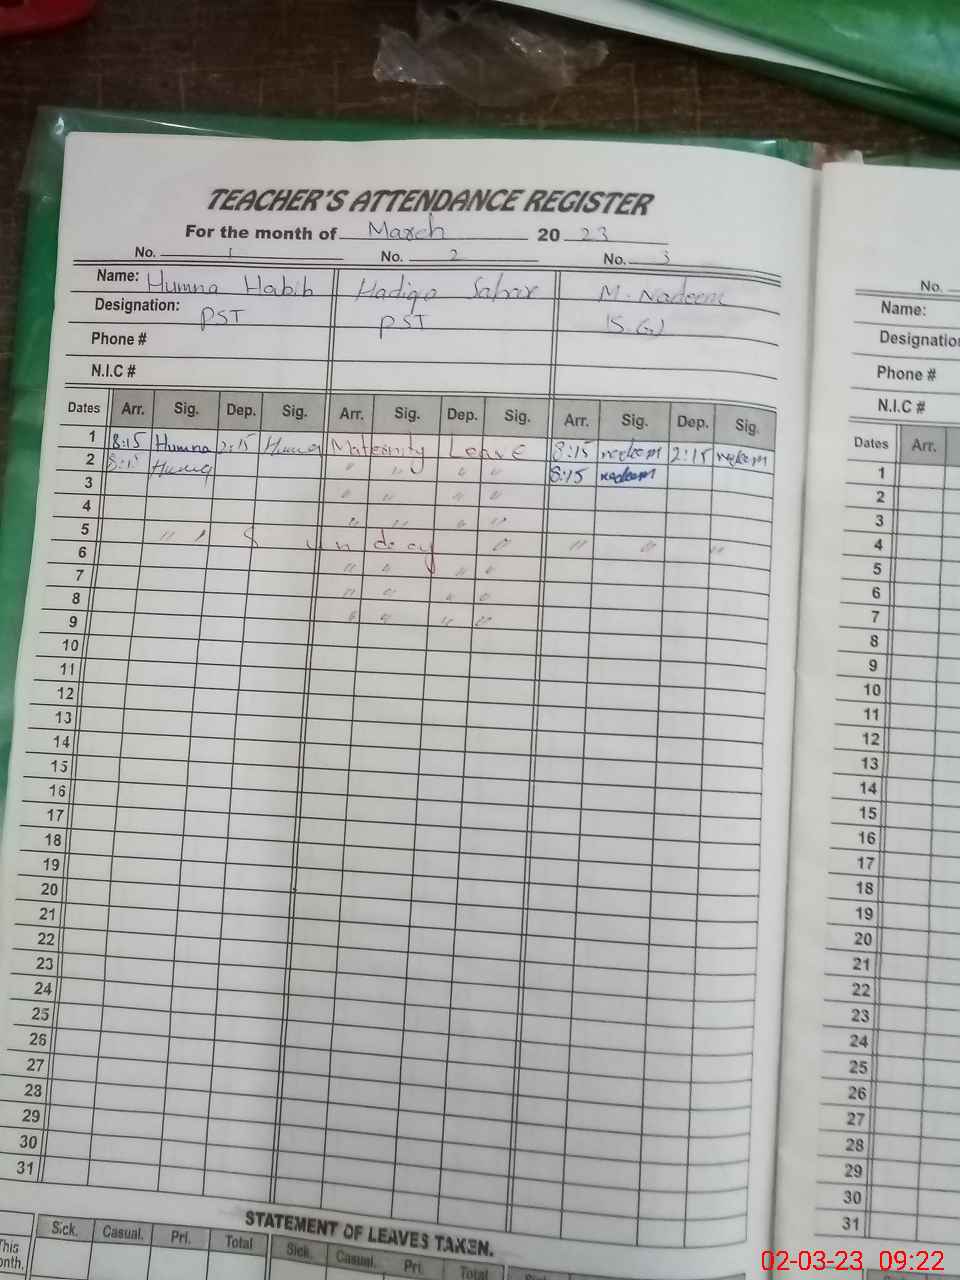 TEACHER'S ATTENDANCE REGISTER
For the month of March 20 23
No. 1 No. 2 No. 3
Name: Humna Habib Hadiqa Sabir M. Nadeem
Designation: PST PST
Phone #
N.I.C #
Dates Arr. Sig. Dep. Sig. Arr. Sig. Dep. Sig. Arr. Sig. Dep. Sig.
1 8:15 Humna 2:15 Humna Maternity Leave 8:15 nadeem 2:15 nadeem
2 8:15 Humna " " " " 8:15 nadeem
3 " " " "
4 " " " "
5 " " S un day " " " "
6 " " " "
7 " " " "
8 " " " "
9
10
11
12
13
14
15
16
17
18
19
20
21
22
23
24
25
26
27
28
29
30
31
STATEMENT OF LEAVES TAKEN.
Sick. Casual. Pri. Total Sick. Casual. Pri. Total
This
onth.
No.
Name:
Designatio
Phone #
N.I.C #
Dates Arr.
1
2
3
4
5
6
7
8
9
10
11
12
13
14
15
16
17
18
19
20
21
22
23
24
25
26
27
28
29
30
31
02-03-23 09:22